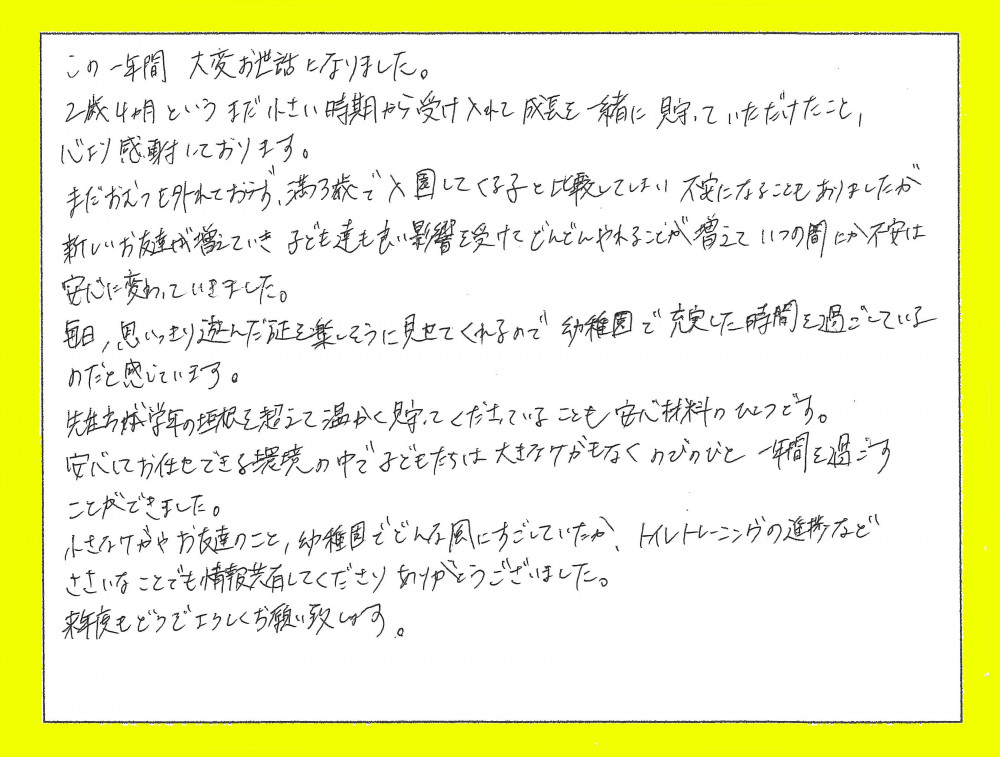 この一年間 大変お世話になりました。
2歳4ヶ月という まだ小さい時期から受け入れて成長を一緒に見守っていただけたこと,
心より感謝しております。
まだおむつも外れておらず、満3歳で入園してくる子と比較してしまい 不安になることもありましたが
新しいお友達が増えていき 子ども達も良い影響を受けて どんどんやれることが増えて いつの間にか不安は
安心に変わっていきました。
毎日, 思いっきり遊んだ証を楽しそうに見せてくれるので 幼稚園で充実した時間を過ごしている
のだと感じています。
先生方が学年の垣根を超えて温かく見守ってくださっていることも安心材料のひとつです。
安心してお任せできる環境の中で子どもたちは大きなケガもなくのびのびと 一年間を過ごす
ことができました。
小さなケガやお友達のこと, 幼稚園でどんな風にすごしていたか、トイレトレーニングの進捗など
ささいなことでも情報共有してくださり ありがとうございました。
来年度もどうぞよろしくお願い致します。